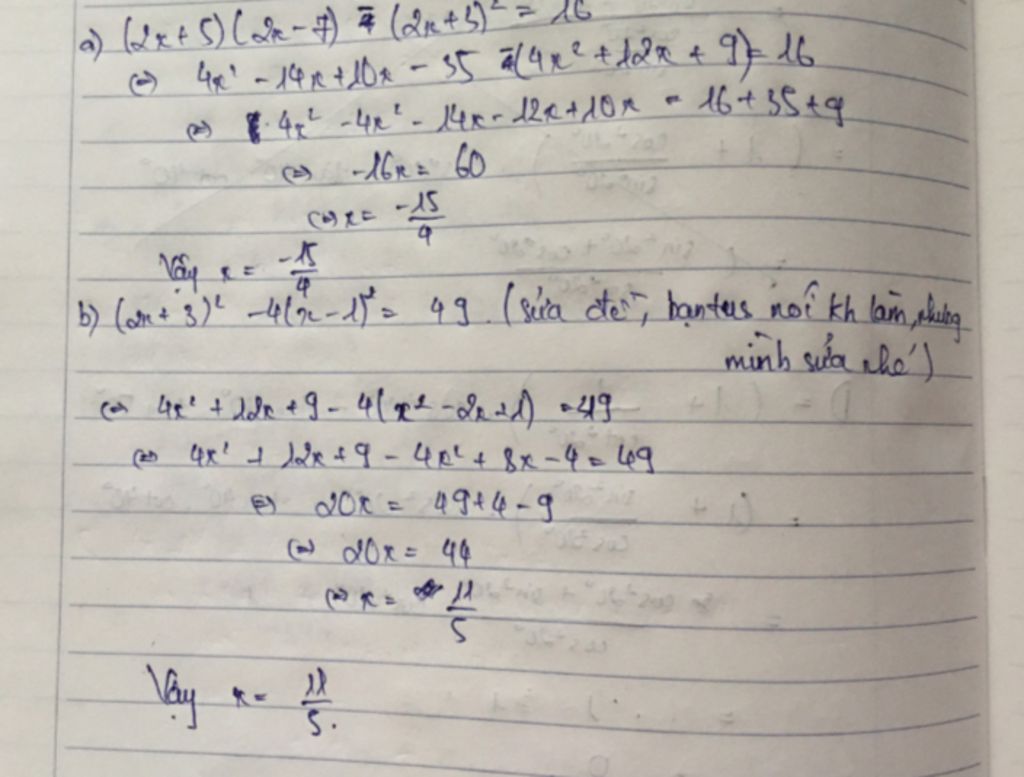 a) (2x+5)(2x-7) - (2x+3)² = 16
(=) 4x² - 14x + 10x - 35 - (4x² + 12x + 9) = 16
(=) 4x² - 4x² - 14x - 12x + 10x = 16 + 35 + 9
(=) -16x = 60
(=) x = -15/4
Vậy x = -15/4
b) (2x + 3)² - 4(x - 1)² = 49. (sửa đề, bạn nói kh làm, nhưng
mình sửa nhé)
(=) 4x² + 12x + 9 - 4(x² - 2x + 1) = 49
(=) 4x² + 12x + 9 - 4x² + 8x - 4 = 49
(=) 20x = 49 + 4 - 9
(=) 20x = 44
(=) x = 11/5
Vậy x = 11/5.